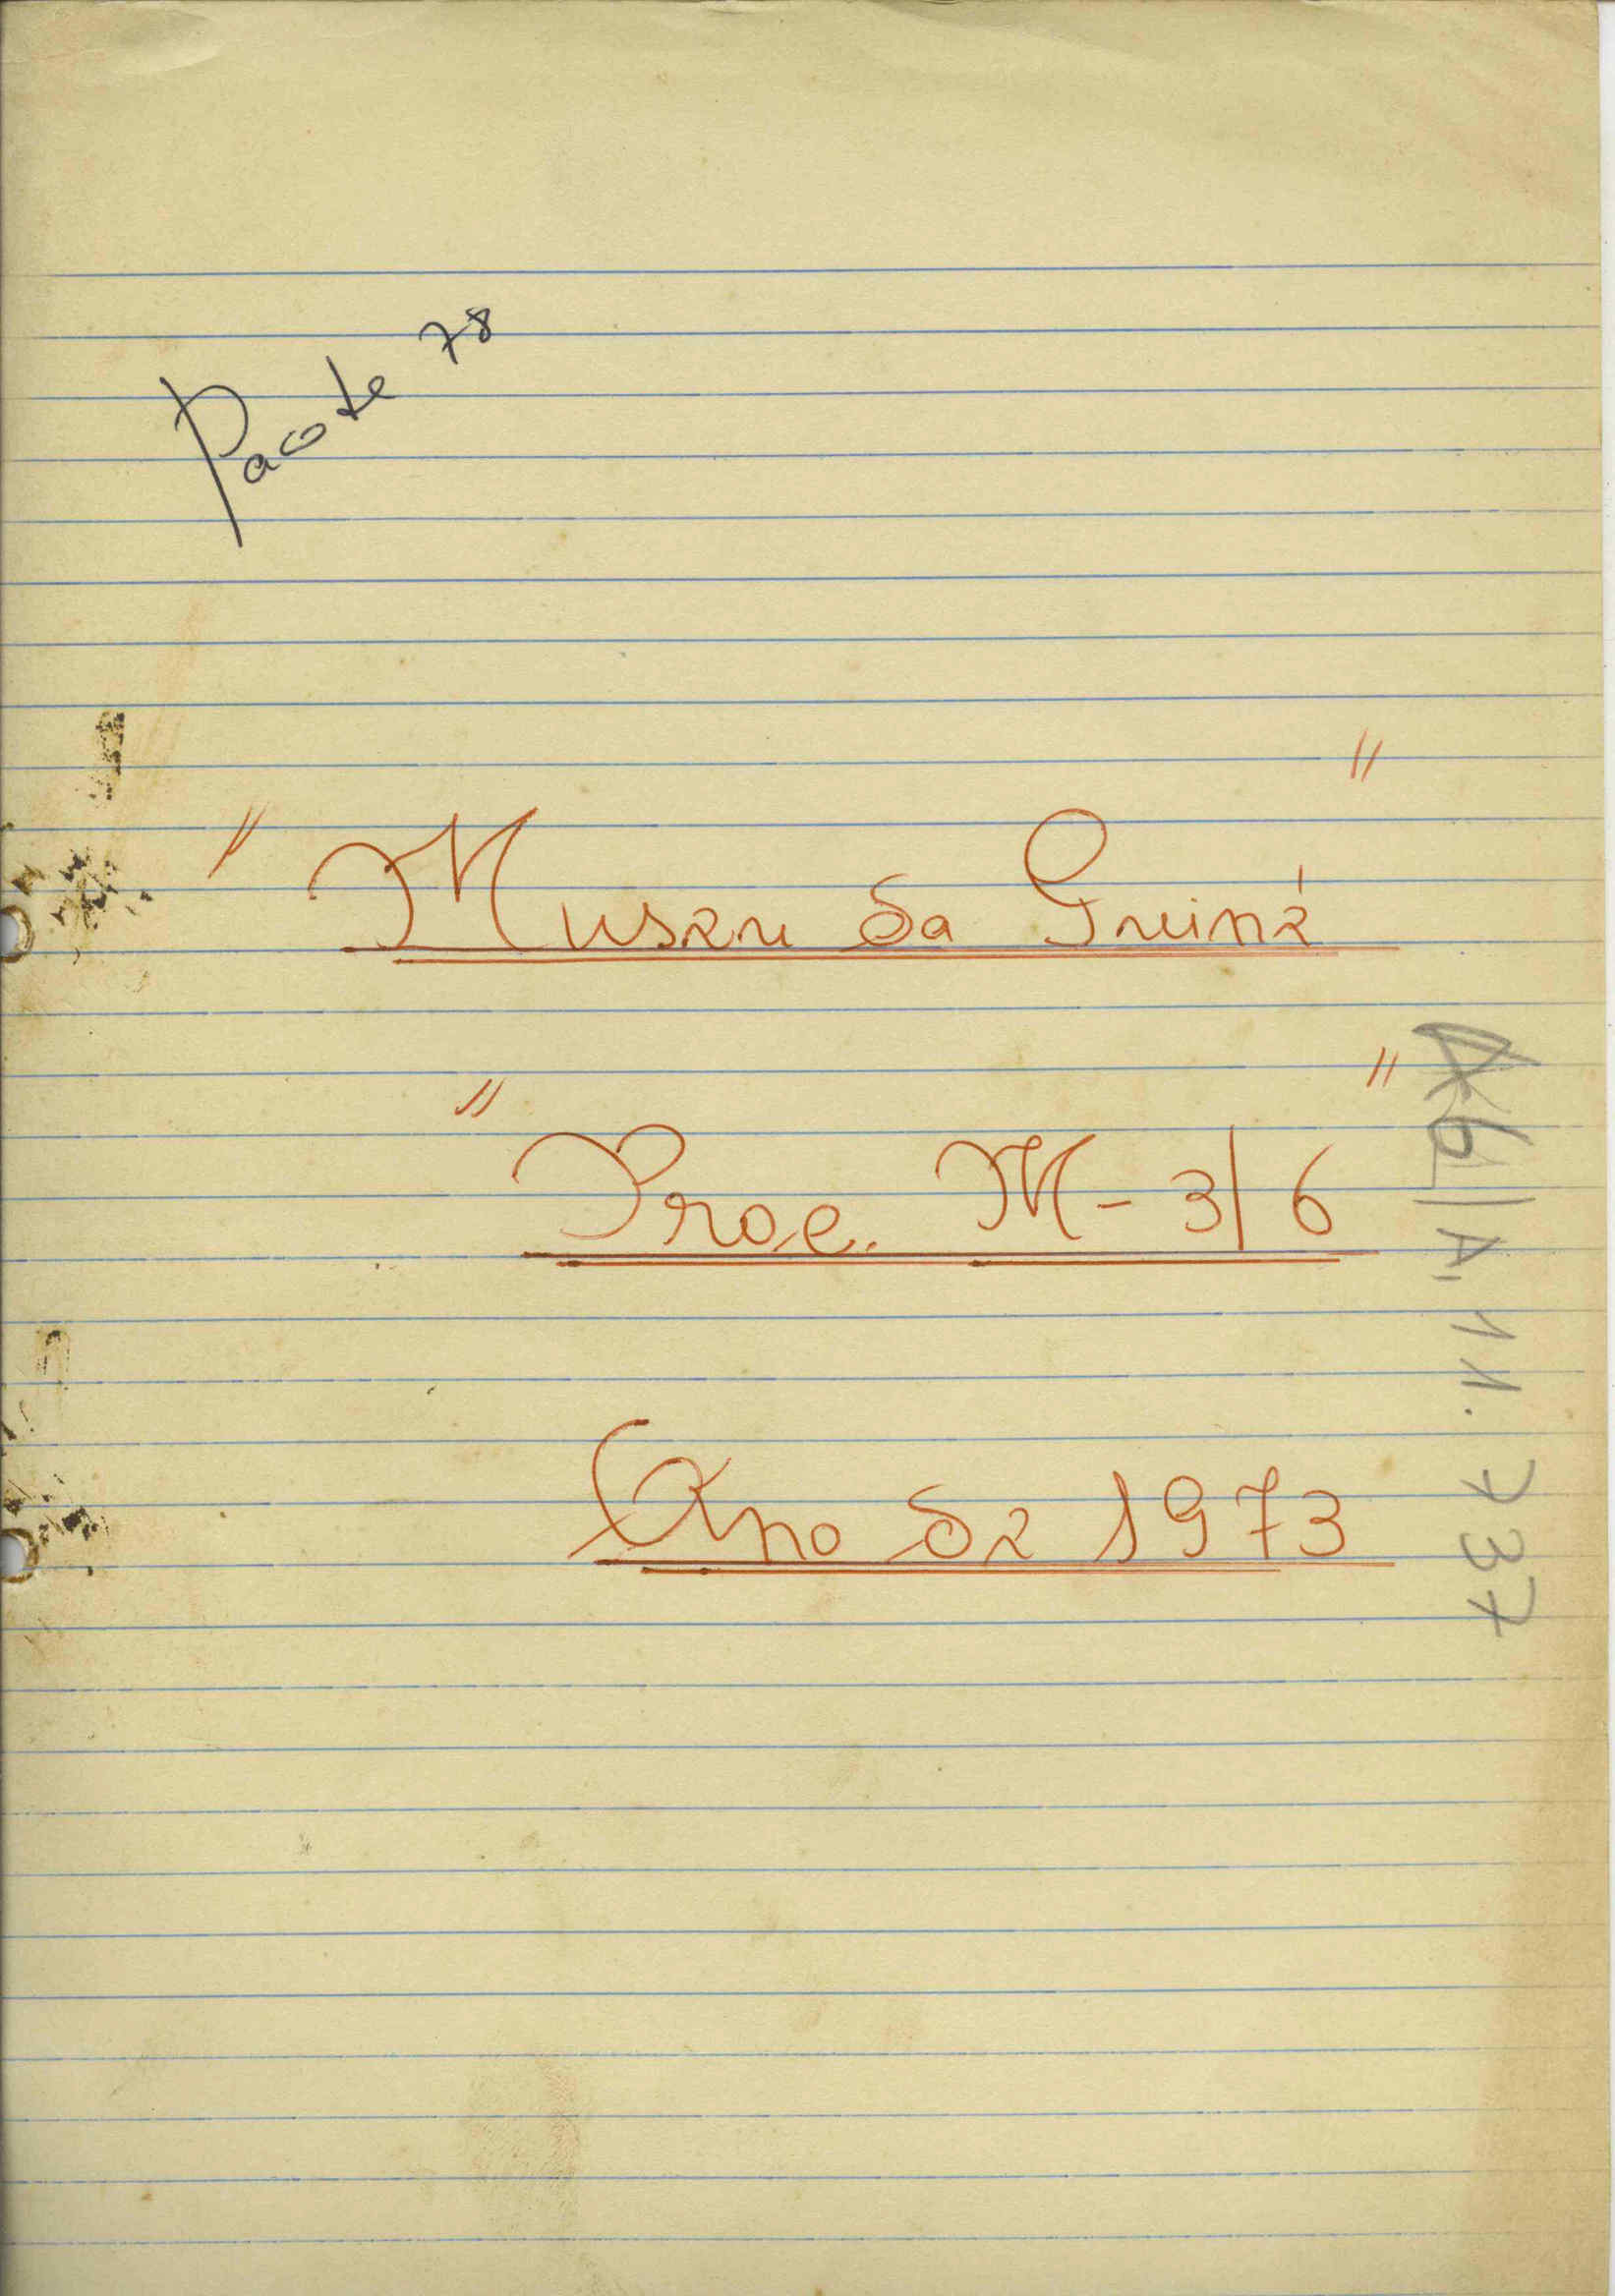 Pacote 78
"Museu da Guiné"
"Proc. M-3/6"
Ano de 1973
A6/A, 11. 737